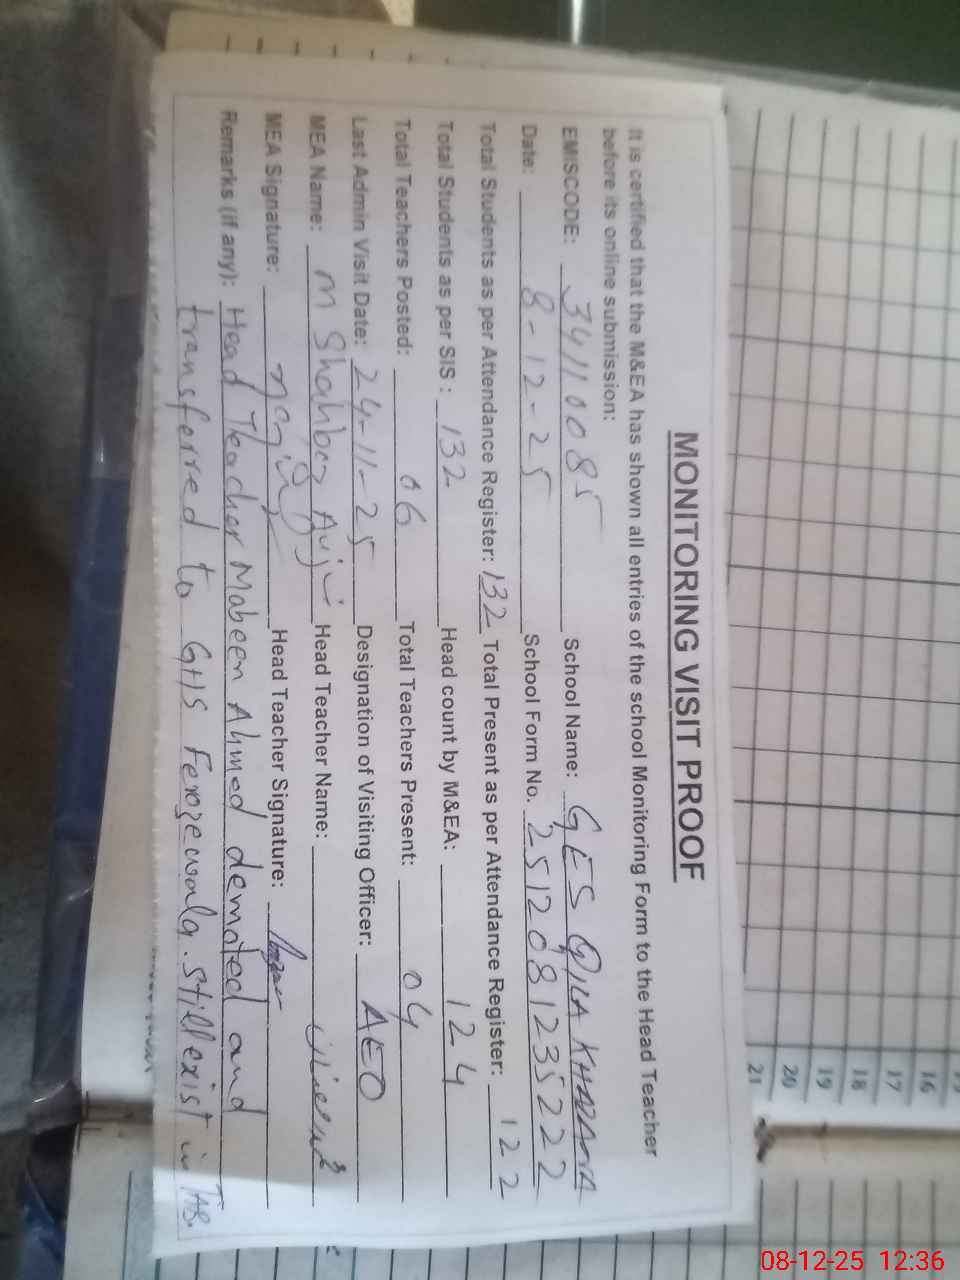 MONITORING VISIT PROOF
It is certified that the M&EA has shown all entries of the school Monitoring Form to the Head Teacher
before its online submission:
EMISCODE: 34110085 School Name: GES QILA KHAZANA
Date: 8-12-25 School Form No. 2512081235222
Total Students as per Attendance Register: 132 Total Present as per Attendance Register: 122
Total Students as per SIS: 132 Head count by M&EA: 124
Total Teachers Posted: 06 Total Teachers Present: 04
Last Admin Visit Date: 24-11-25 Designation of Visiting Officer: AEO
MEA Name: M Shahbaz Head Teacher Name:
MEA Signature: Head Teacher Signature:
Remarks (if any): Head Teacher Mabeen Ahmed demoted and
transferred to GHS Ferozewala. still exist in TAB.
16
17
18
19
20
21
08-12-25 12:36